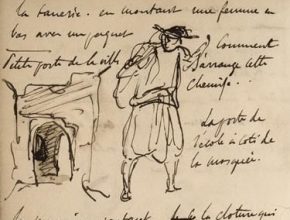 la tanerie. en montant une femme en
bas avec un paquet
Petite porte de la ville
Comment
s'arrange cette
chemise..
La porte de
l'école à coté de
la mosquée.
de la cloture qui